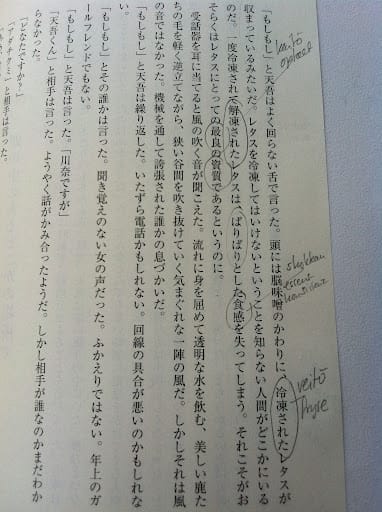 「もしもし」と天吾はよく回らない舌で言った。頭には脳味噌のかわりに、冷凍されたレタスが
収まっているみたいだ。レタスを冷凍してはいけないということを知らない人間がどこかにいる
のだ。一度冷凍されて解凍されたレタスは、ぱりぱりとした食感を失ってしまう。それこそがお
そらくはレタスにとっての最良の資質であるというのに。
受話器を耳に当てると風の吹く音が聞こえた。流れに身を屈めて透明な水を飲む、美しい鹿た
ちの毛を軽く逆立てながら、狭い谷間を吹き抜けていく気まぐれな一陣の風だ。しかしそれは風
の音ではなかった。機械を通して誇張された誰かの息づかいだ。
「もしもし」と天吾は繰り返した。いたずら電話かもしれない。回線の具合が悪いのかもしれな
い。
「もしもし」とその誰かは言った。聞き覚えのない女の声だった。ふかえりではない。年上のガ
ールフレンドでもない。
「もしもし」と天吾は言った。「川奈ですが」
「天吾くん」と相手は言った。ようやく話がかみ合ったようだ。しかし相手が誰なのかまだわか
らなかった。
「どなたですか？」
「アダチクミ」と相手は言った。
kaitō
shokkan
reitō
fryse